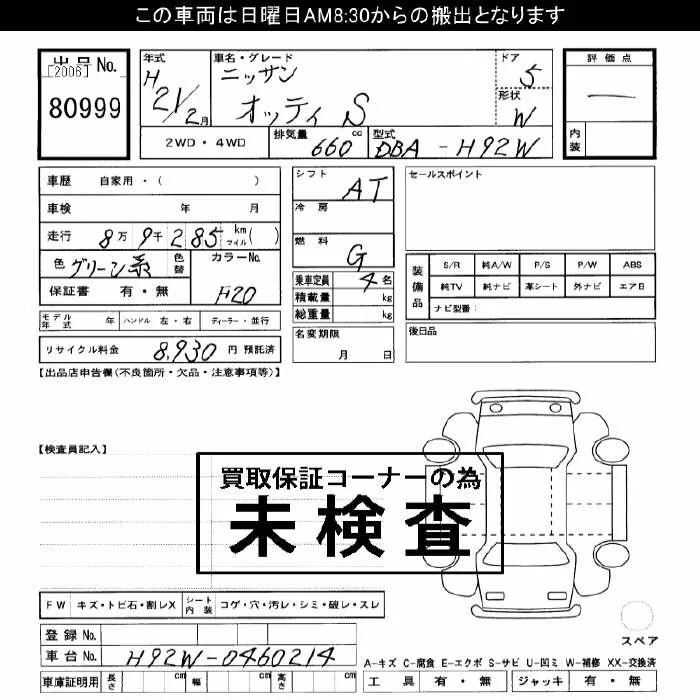 この車両は日曜日AM8:30からの搬出となります
出品No.
[2006]
80999
年式 H21/2月
車名・グレード ニッサン オッティ S
ドア 5
形状 W
評価点 —
内装
2WD・4WD
排気量 660cc
型式 DBA-H92W
車歴 自家用・( )
車検 年 月
走行 8万9千285 km マイル( )
色 グリーン系 色替
カラーNo. H20
保証書 有・無
モデル年式 年 ハンドル 左・右 ディーラー・並行
リサイクル料金 8,930 円 預託済
シフト AT
冷房
燃料 G
乗車定員 4名
積載量 kg
総重量 kg
名変期限 月 日
セールスポイント
装備品
S/R 純A/W P/S P/W ABS
純TV 純ナビ 革シート 外ナビ エアB
ナビ型番:
後日品
【出品店申告欄(不良箇所・欠品・注意事項等)】
【検査員記入】
買取保証コーナーの為
未検査
FW キズ・トビ石・割レX
シート内装 コゲ・穴・汚レ・シミ・破レ・スレ
スペア
登録No.
車台No. H92W-0460214
車庫証明用 長さ cm 幅 cm 高さ cm
A-キズ C-腐食 E-エクボ S-サビ U-凹ミ W-補修 XX-交換済
工具 有・無 ジャッキ 有・無